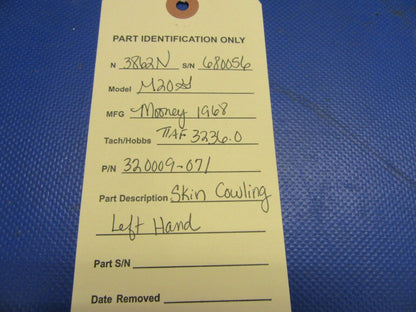 PART IDENTIFICATION ONLY
N 3862N S/N 680056
Model M20
MFG Mooney 1968
Tach/Hobbs TTAF 3236.0
P/N 320009-071
Part Description Skin Cowling
Left Hand
Part S/N
Date Removed